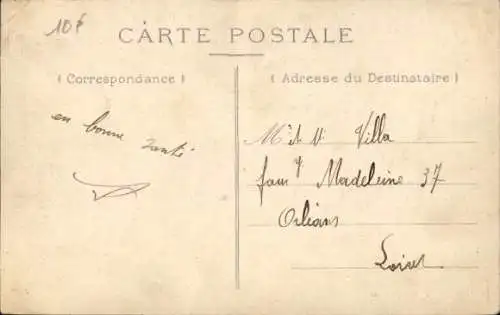 10f
CARTE POSTALE
( Correspondance )
( Adresse du Destinataire )
en bonne santé
M et V. Villa
faub Madeleine 37
Orléans
Loiret